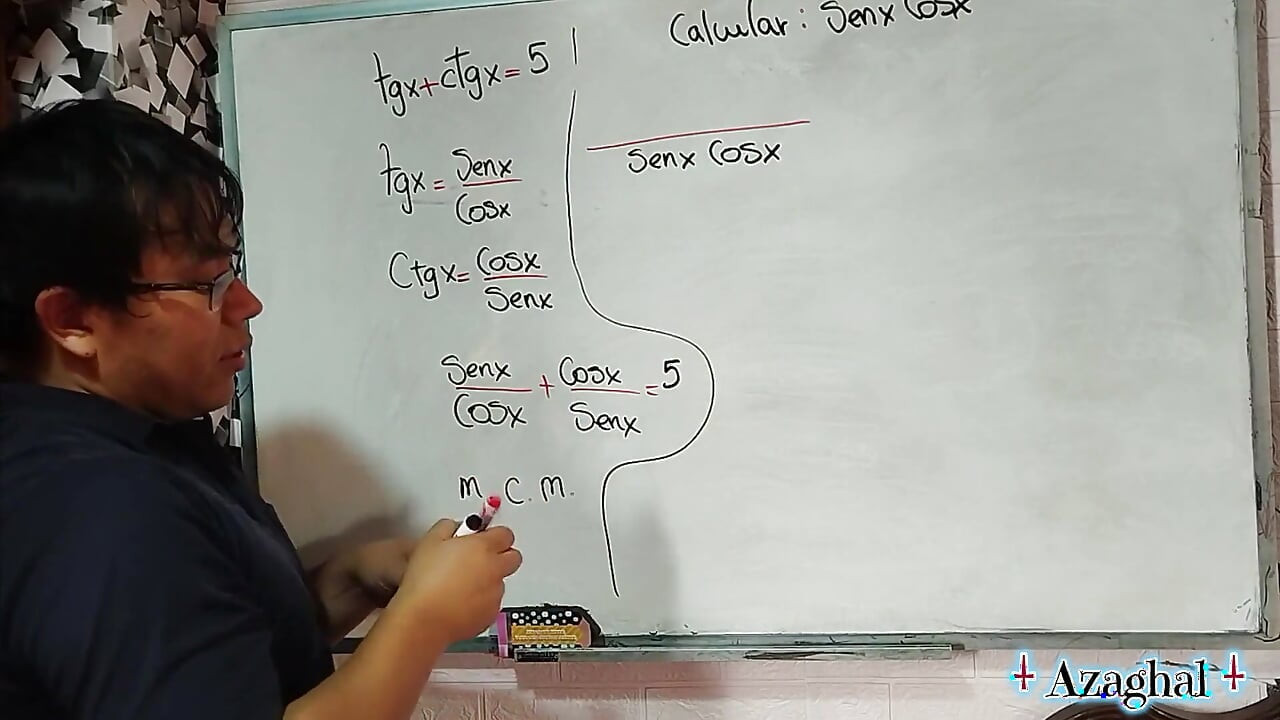 tgx+ctgx=5
tgx=Senx
Cosx
Ctgx=Cosx
Senx
Senx+Cosx=5
Cosx Senx
m.C.m.
Calcular: Senx Cosx
Senx Cosx
Azaghal